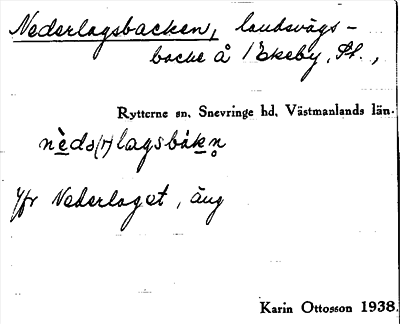 Nederlagsbacken, landsvägs-
backe å Ekeby,
Rytterne sn. Snevringe hd. Västmanlands län.
nèda(r)lagsbàkn̥
Jfr Nederlaget, äng
Karin Ottosson 1938.